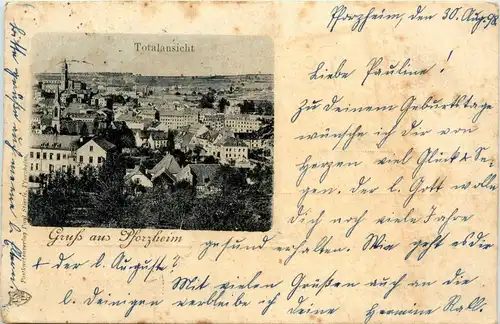 Pforzheim, den 30 Aug. 98
Totalansicht
Liebe Pauline!
Zu deinem Geburtstage
wünsche ich dir von
Herzen viel Glück + Se-
gen. der l. Gott wolle
dich noch viele Jahre
Gruß aus Pforzheim
gesund erhalten. Wie geht es dir
+ der l. Auguste? Mit vielen Grüßen auch an die
l. deinigen verbleibe ich deine Hermine Rall.
bitte grüße auch